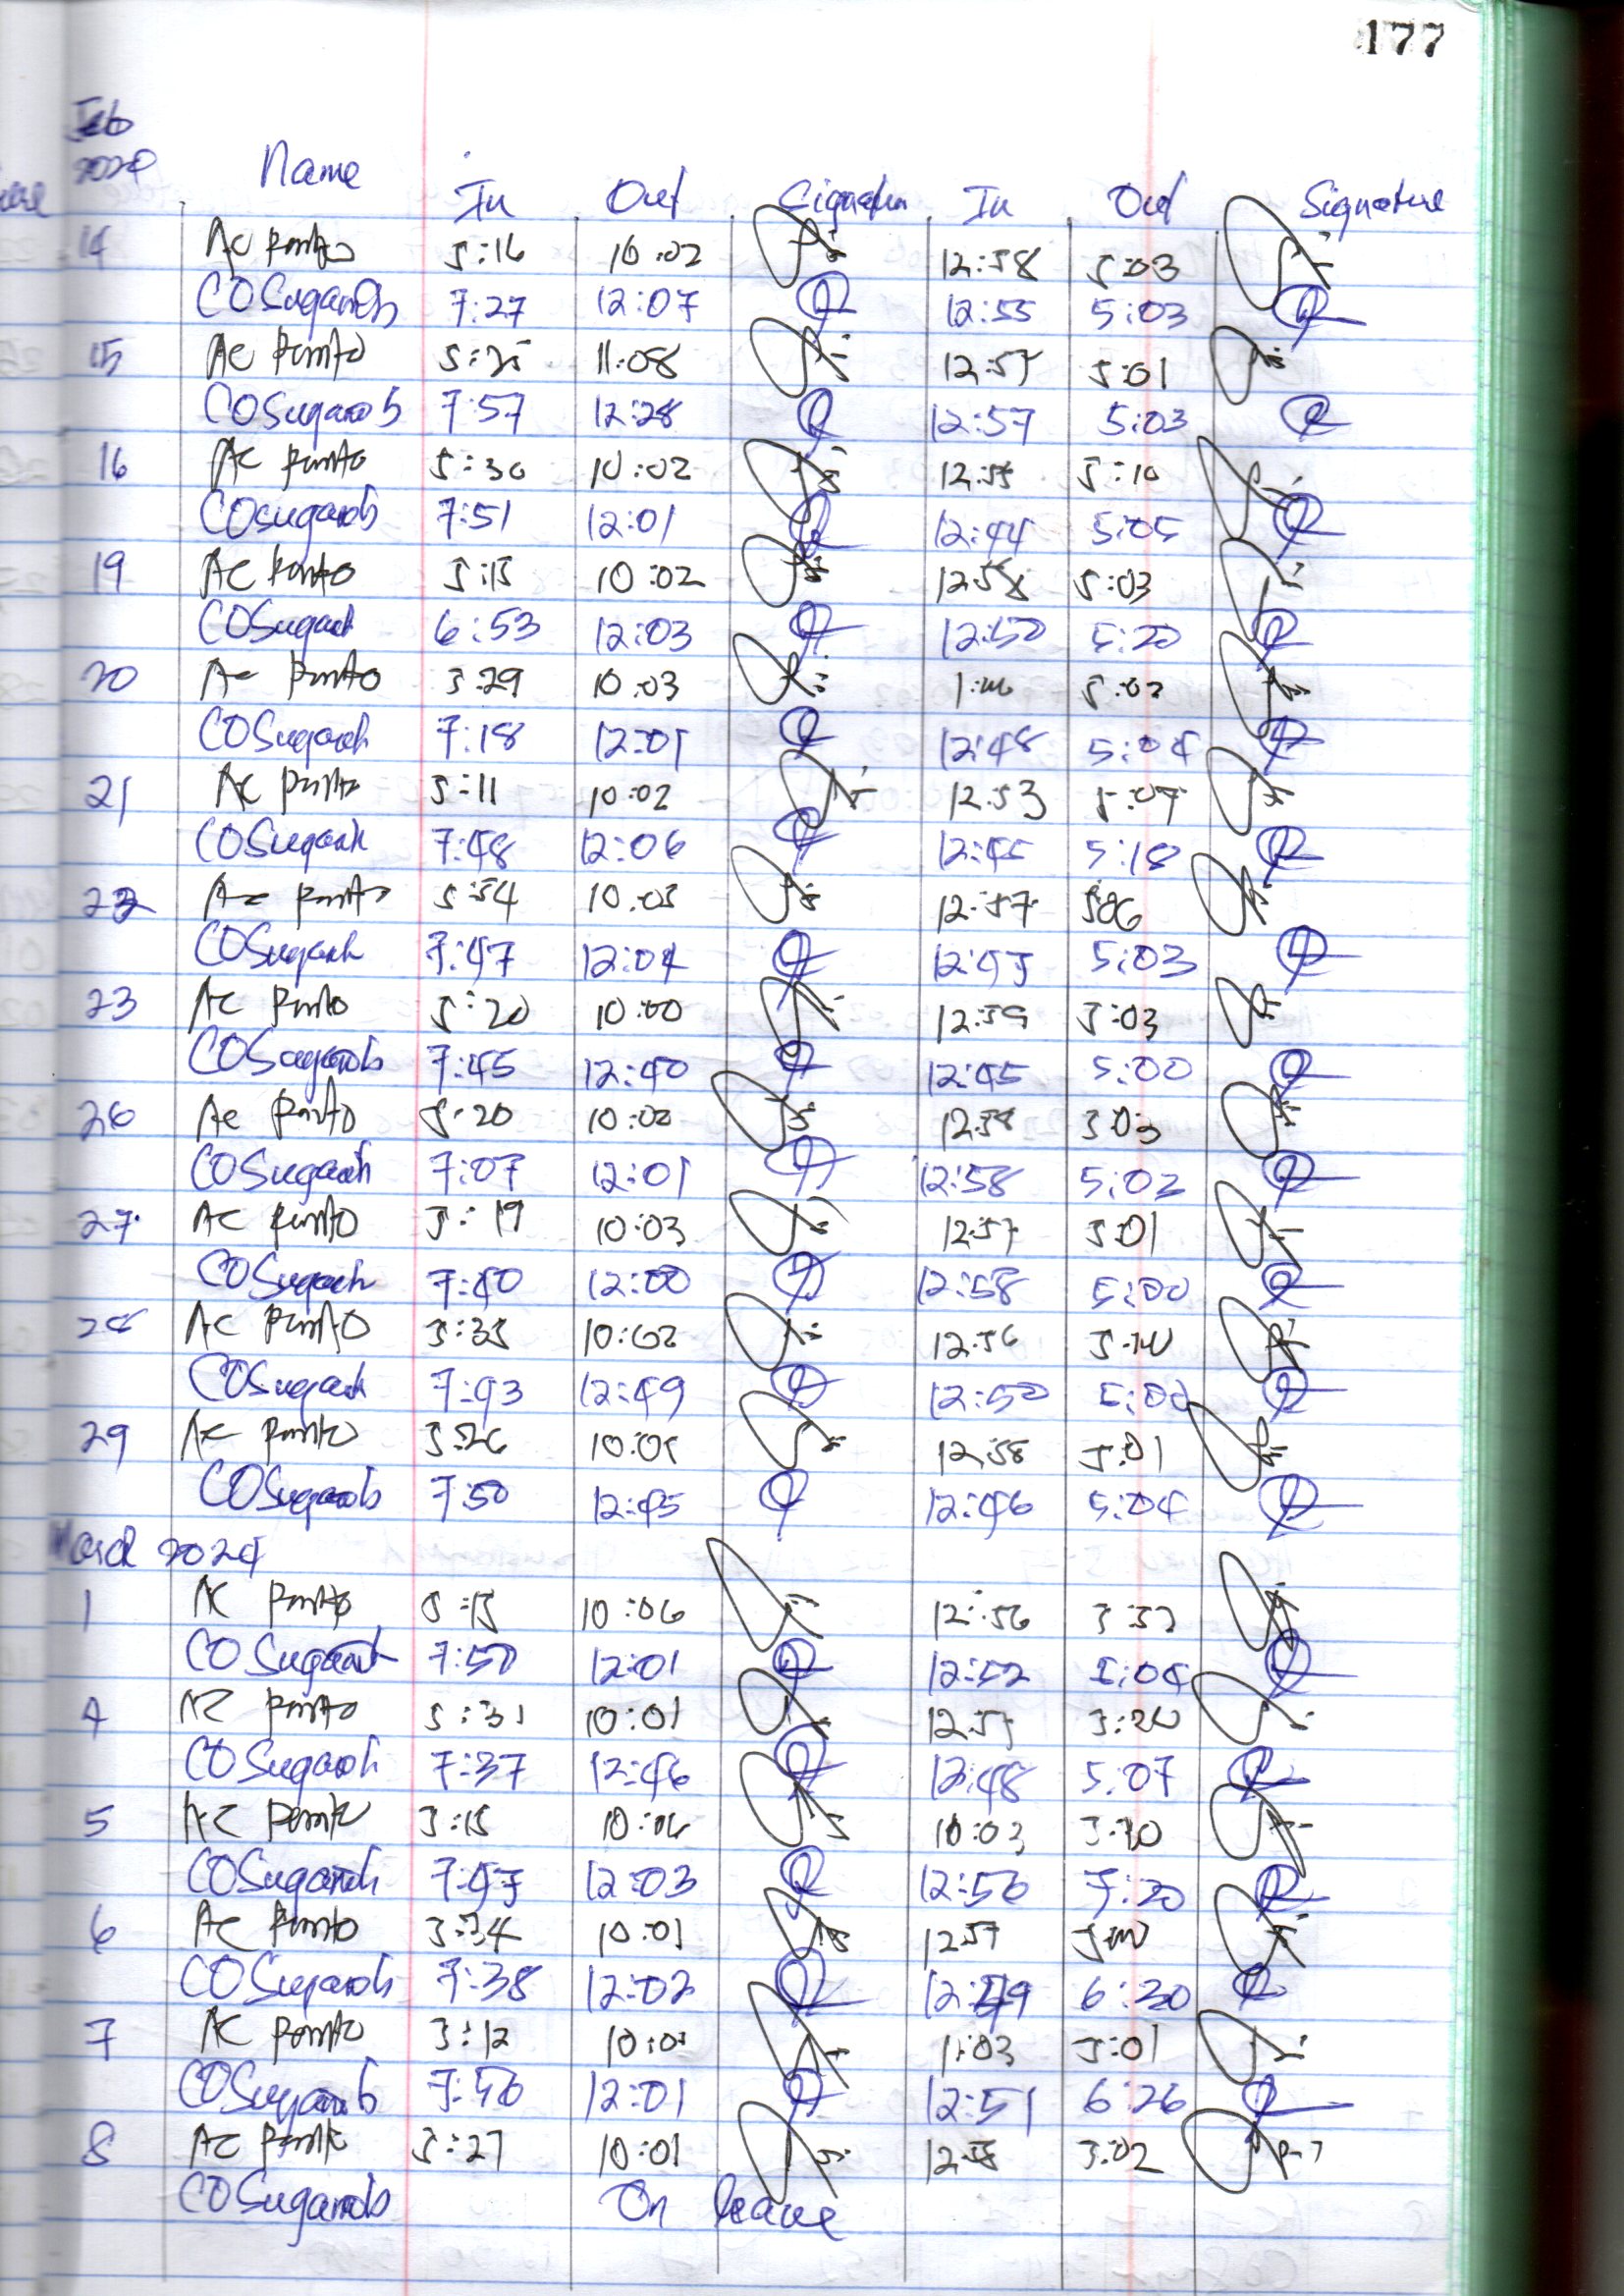 177
Feb
2024 Name In Out Signature In Out Signature
14 AC Ponto 5:16 10:02 12:58 5:03
COSugarob 7:27 12:07 12:55 5:03
15 AC Ponto 5:25 11:08 12:57 5:01
COSugarob 7:57 12:28 12:57 5:03
16 AC Ponto 5:30 10:02 12:55 5:10
COSugarob 7:51 12:01 12:44 5:05
19 AC Ponto 5:15 10:02 12:58 5:03
COSugarob 6:53 12:03 12:50 5:20
20 AC Ponto 5:29 10:03 1:00 5:02
COSugarob 7:18 12:01 12:48 5:04
21 AC Ponto 5:11 10:02 12:53 5:07
COSugarob 7:48 12:06 12:45 5:18
22 AC Ponto 5:54 10:03 12:57 5:06
COSugarob 7:47 12:04 12:45 5:03
23 AC Ponto 5:20 10:00 12:59 5:03
COSugarob 7:45 12:40 12:45 5:00
26 AC Ponto 5:20 10:02 12:58 5:03
COSugarob 7:07 12:01 12:58 5:02
27 AC Ponto 5:19 10:03 12:57 5:01
COSugarob 7:40 12:00 12:58 5:00
28 AC Ponto 5:35 10:02 12:56 5:10
COSugarob 7:43 12:49 12:50 5:00
29 AC Ponto 5:26 10:01 12:58 5:01
COSugarob 7:50 12:45 12:46 5:04
March 2024
1 AC Ponto 5:15 10:06 12:56 5:32
COSugarob 7:50 12:01 12:52 5:04
4 AC Ponto 5:31 10:01 12:57 5:20
COSugarob 7:37 12:46 12:48 5:07
5 AC Ponto 5:15 10:06 10:03 5:10
COSugarob 7:47 12:03 12:50 5:20
6 AC Ponto 5:34 10:01 12:57 5:00
COSugarob 7:38 12:02 12:49 6:30
7 AC Ponto 5:12 10:01 1:03 5:01
COSugarob 7:50 12:01 12:51 6:26
8 AC Ponto 5:27 10:01 12:58 5:02
COSugarob On leave